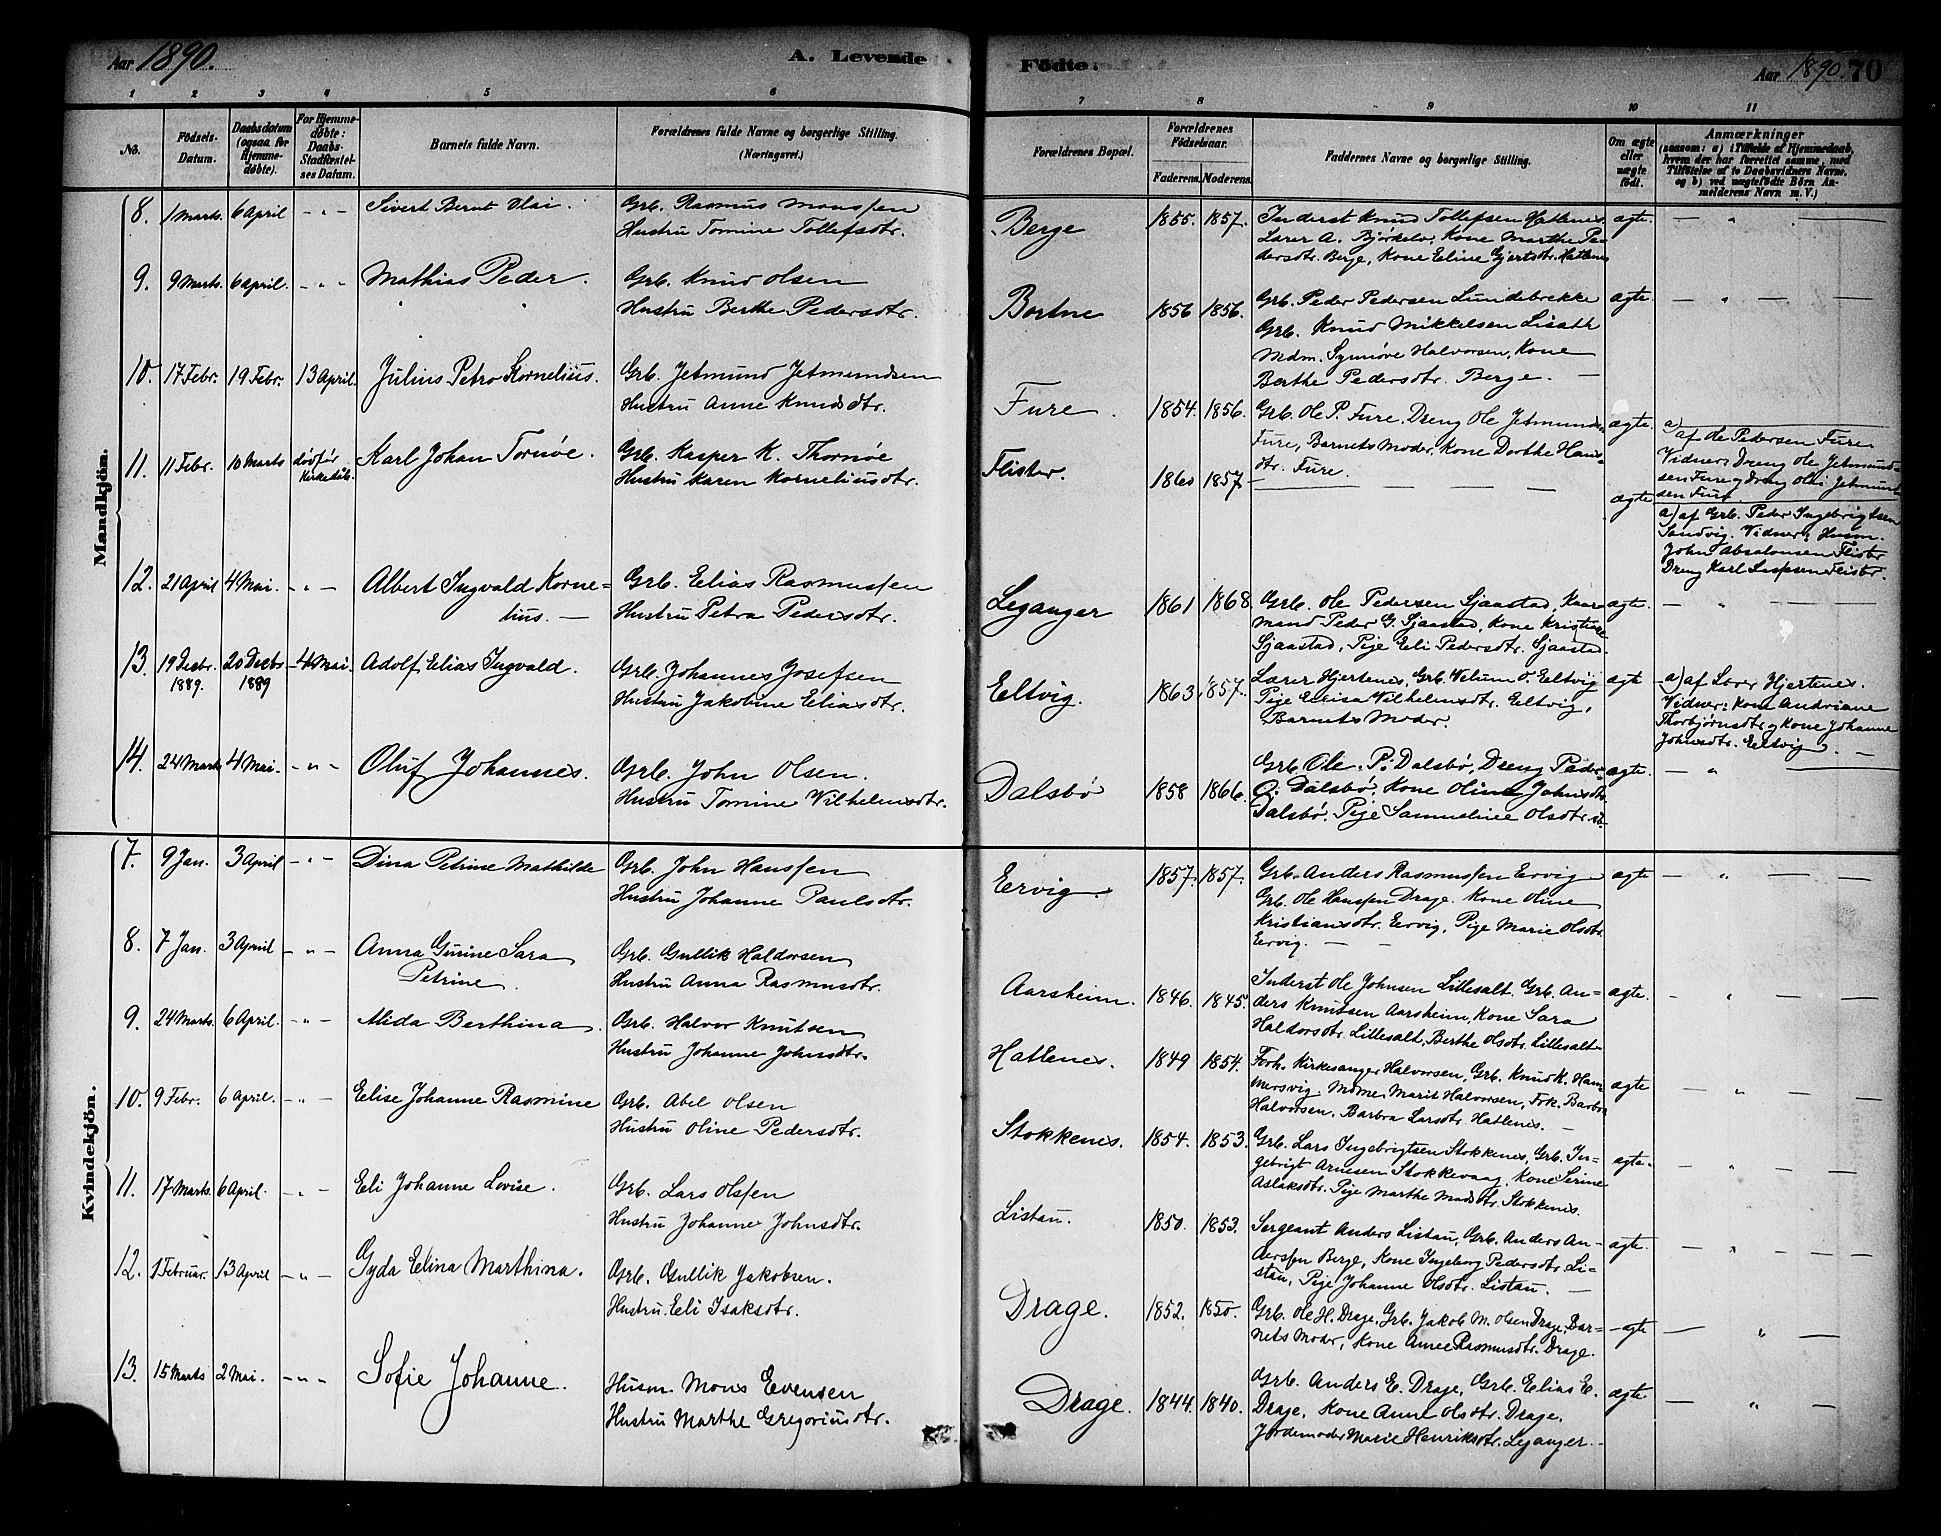 Aar 1890. A. Levende Födte. Aar 1890. 70
1 2 3 4 5 6 7 8 9 10 11
No.
Födsels-Datum.
Daabsdatum (ogsaa for Hjemme-döbte).
For Hjemme-döbte: Daabs-Stadfæstel-ses Datum.
Barnets fulde Navn.
Forældrenes fulde Navne og borgerlige Stilling. (Næringsvei.)
Forældrenes Bopæl.
Forældrenes Födselsaar.
Faderens. Moderens.
Faddernes Navne og borgerlige Stilling.
Om ægte eller uægte födt.
Anmærkninger
(saasom: a) i Tilfælde af Hjemmedaab, hvem der har forrettet samme, med Tilföielse af to Daabsvidners Navne, og b) ved uægtefödte Börn Anmelderens Navn m. V.)
Mandkjön.
8. 1 Marts. 6 April - " - Sivert Bernt Olai. Grb. Rasmus Monssen
Hustru Tomine Tollefsdtr.
Berge 1855. 1857. Inderst Knud Tollefsen Hatlenes.
Lærer A. Bjørkelo, Kone Marthe Pe-
dersdtr. Berge, Kone Eeline Gjertsdtr. Hatlenes
ægte. — " — —
9. 9 Marts. 6 April. - " - Mathias Peder. Grb. Knud Olsen
Hustru Berthe Pedersdtr.
Bortne 1856 1856. Grb. Peder Pedersen Lundebrekke
Grb. Knud Mikkelsen Liseth
Mdm. Synnøve Halvorsen, Kone
Berthe Pedersdtr. Berge. —
ægte. — " — —
10. 17 Febr. 19 Febr. 13 April. Julius Petro Kornelius. Grb. Jetmund Jetmundsen
Hustru Anne Knudsdtr.
Fure. 1854. 1856. Grb. Ole P. Fure, Dreng Ole Jetmunds.
Fure, Barnets Moder, Kone Dorthe Hans-
dtr. Fure.
ægte. a) af Ole Pedersen Fure.
Vidner: Dreng Ole Jetmund-
sen Fure og Dreng Olai Jetmund
sen Fure.
11. 11 Febr. 10 Marts død før Kirkedåb. Karl Johan Tornøe. Grb. Kasper K. Thornøe
Hustru Karen Korneliusdtr.
Flister. 1860 1857 — — — —
ægte a) af Grb. Peder Ingebrigtsen
Sandvig. Vidner: Husm.
John Absalonsen Flister
Dreng Karl Flister.
12. 21 April 4 Mai. - " - Albert Ingvald Korne-
lius. — Grb. Eelias Rasmussen
Hustru Petra Pedersdtr.
Leganger 1861 1868. Grb. Ole Pedersen Sjaastad, Kaar-
mand Peder G. Sjaastad, Kone Kristiane
Sjaastad, Pige Eeli Pedersdtr. Sjaastad.
ægte. — " — —
13. 19 Decbr. 1889. 20 Decbr 1889 4 Mai. Adolf Elias Ingvald. Grb. Johannes Josefsen
Hustru Jakobine Eliasdtr.
Eeltvig. 1863. 1857. Lærer Hjertenes, Grb. Velum O. Eeltvig
Pige Vilhelmsdtr. Eeltvig,
Barnets Moder.
ægte a) af Lærer Hjertenes.
Vidner: Kone Andriane
Thorbjørnsdtr og Kone Johanne
Johnsdtr. Eeltvig. —
14. 24 Marts 4 Mai. - " - Oluf Johannes. Grb. John Olsen.
Hustru Tomine Vilhelmsdtr.
Dalsbø 1858 1866. Grb. Ole P. Dalsbø, Dreng Peder
O. Dalsbø, Kone Oline Johnsdtr.
Dalsbø. Pige Samueline Olsdtr. ib.
ægte. — " —
Kvindekjön.
7. 9 Jan. 3 April - " - Dina Petrine Mathilde Grb. John Hanssen
Hustru Johanne Paulsdtr.
Eervig. 1857. 1857. Grb. Anders Rasmussen Eervig
Grb. Ole Hanssen Drage. Kone Oline
Kristiansdtr. Eervig, Pige Marie Olsdtr.
Eervig. — —
ægte — " — —
8. 7 Jan. 3 April - " - Anna Gurine Sara
Petrine. Grb. Gullik Haldorsen
Hustru Anna Rasmusdtr.
Aarsheim. 1846. 1845. Inderst Ole Johnsen Lillesalt. Grb. An-
ders Knutsen Aarsheim, Kone Sara
Haldorsdtr. Lillesalt, Berthe Olsdtr. Lillesalt
ægte. — " — —
9. 24 Marts. 6 April. - " - Alida Berthina. Grb. Halvor Knutsen
Hustru Johanne Johnsdtr.
Hatlenes. 1849 1854. Forh. Kirkesanger Halvorsen, Grb. Knud K. Ham-
mersvig, Mdme Marit Halvorsen, Frk. Barbra
Halvorsen, Barbra Larsdtr. Hatlenes. —
ægte — " — —
10. 9 Febr. 6 April. - " - Eelise Johanne Rasmine Grb. Abel Olsen
Hustru Oline Pedersdtr.
Stokkenes. 1854. 1853. Grb. Lars Ingebrigtsen Stokkenes, Grb. In-
gebrigt Arnesen Stokkevaag, Kone Serine
Aslaksdtr. Pige Marthe Madsdtr. Stokkenes.
ægte. — " — —
11. 17 Marts. 6 April. - " - Eeli Johanne Lovise. Grb. Lars Olssen
Hustru Johanne Johnsdtr.
Listau. 1850. 1853. Sergeant Anders Listau, Grb. Anders An-
derssen Berge, Kone Ingeborg Pedersdtr. Li-
stau, Pige Johanne Olsdtr. Listau. —
ægte. — " — —
12. 1 Februar. 13 April - " - Gyda Elina Marthina. Grb. Gullik Jakobsen.
Hustru. Eeli Isaksdtr.
Drage. 1852. 1850. Grb. Ole H. Drage, Grb. Jakob M. Olsen Drage, Bar-
nets Moder, Kone Anne Rasmusdtr. Drage.
ægte — " — —
13. 15 Marts 2 Mai. - " - Sofie Johanne. Husm. Mons Eevensen
Hustru Marthe Gregoriusdtr.
Drage. 1844. 1840. Grb. Anders E. Drage, Grb. Elias E.
Drage, Kone Anne Olsdtr. Drage,
Jordemoder Marie Henriksdtr. Leganger. —
ægte. — " — —